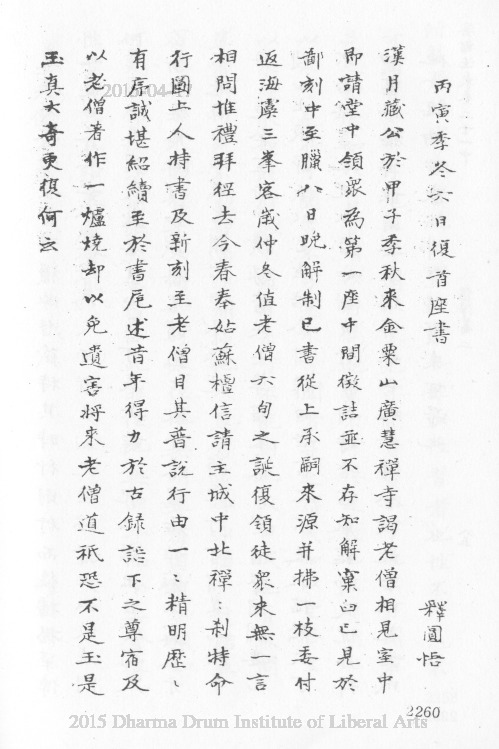 丙寅季冬六日復首座書
釋圓悟
漢月藏公於甲子季秋來金粟山廣慧禪寺謁老僧相見室中
即請堂中領眾為第一座中間徵詰並不存知解窠臼已見於
鄙刻中至臘八日晚解制已書從上承嗣來源并拂一枝委付
返海虞三峯客歲仲冬值老僧六旬之誕復領徒眾來無一言
相問惟禮拜徑去今春奉姑蘇檀信請主城中北禪：剎特命
行圓上人持書及新刻至老僧目其普說行由一：精明歷：
有序誠堪紹續至於書尾述昔年得力於古錄諸下之尊宿及
以老僧著作一爐燒却以免遺害將來老僧道祇恐不是玉是
玉真大奇更復何云
2260
2015 Dharma Drum Institute of Liberal Arts